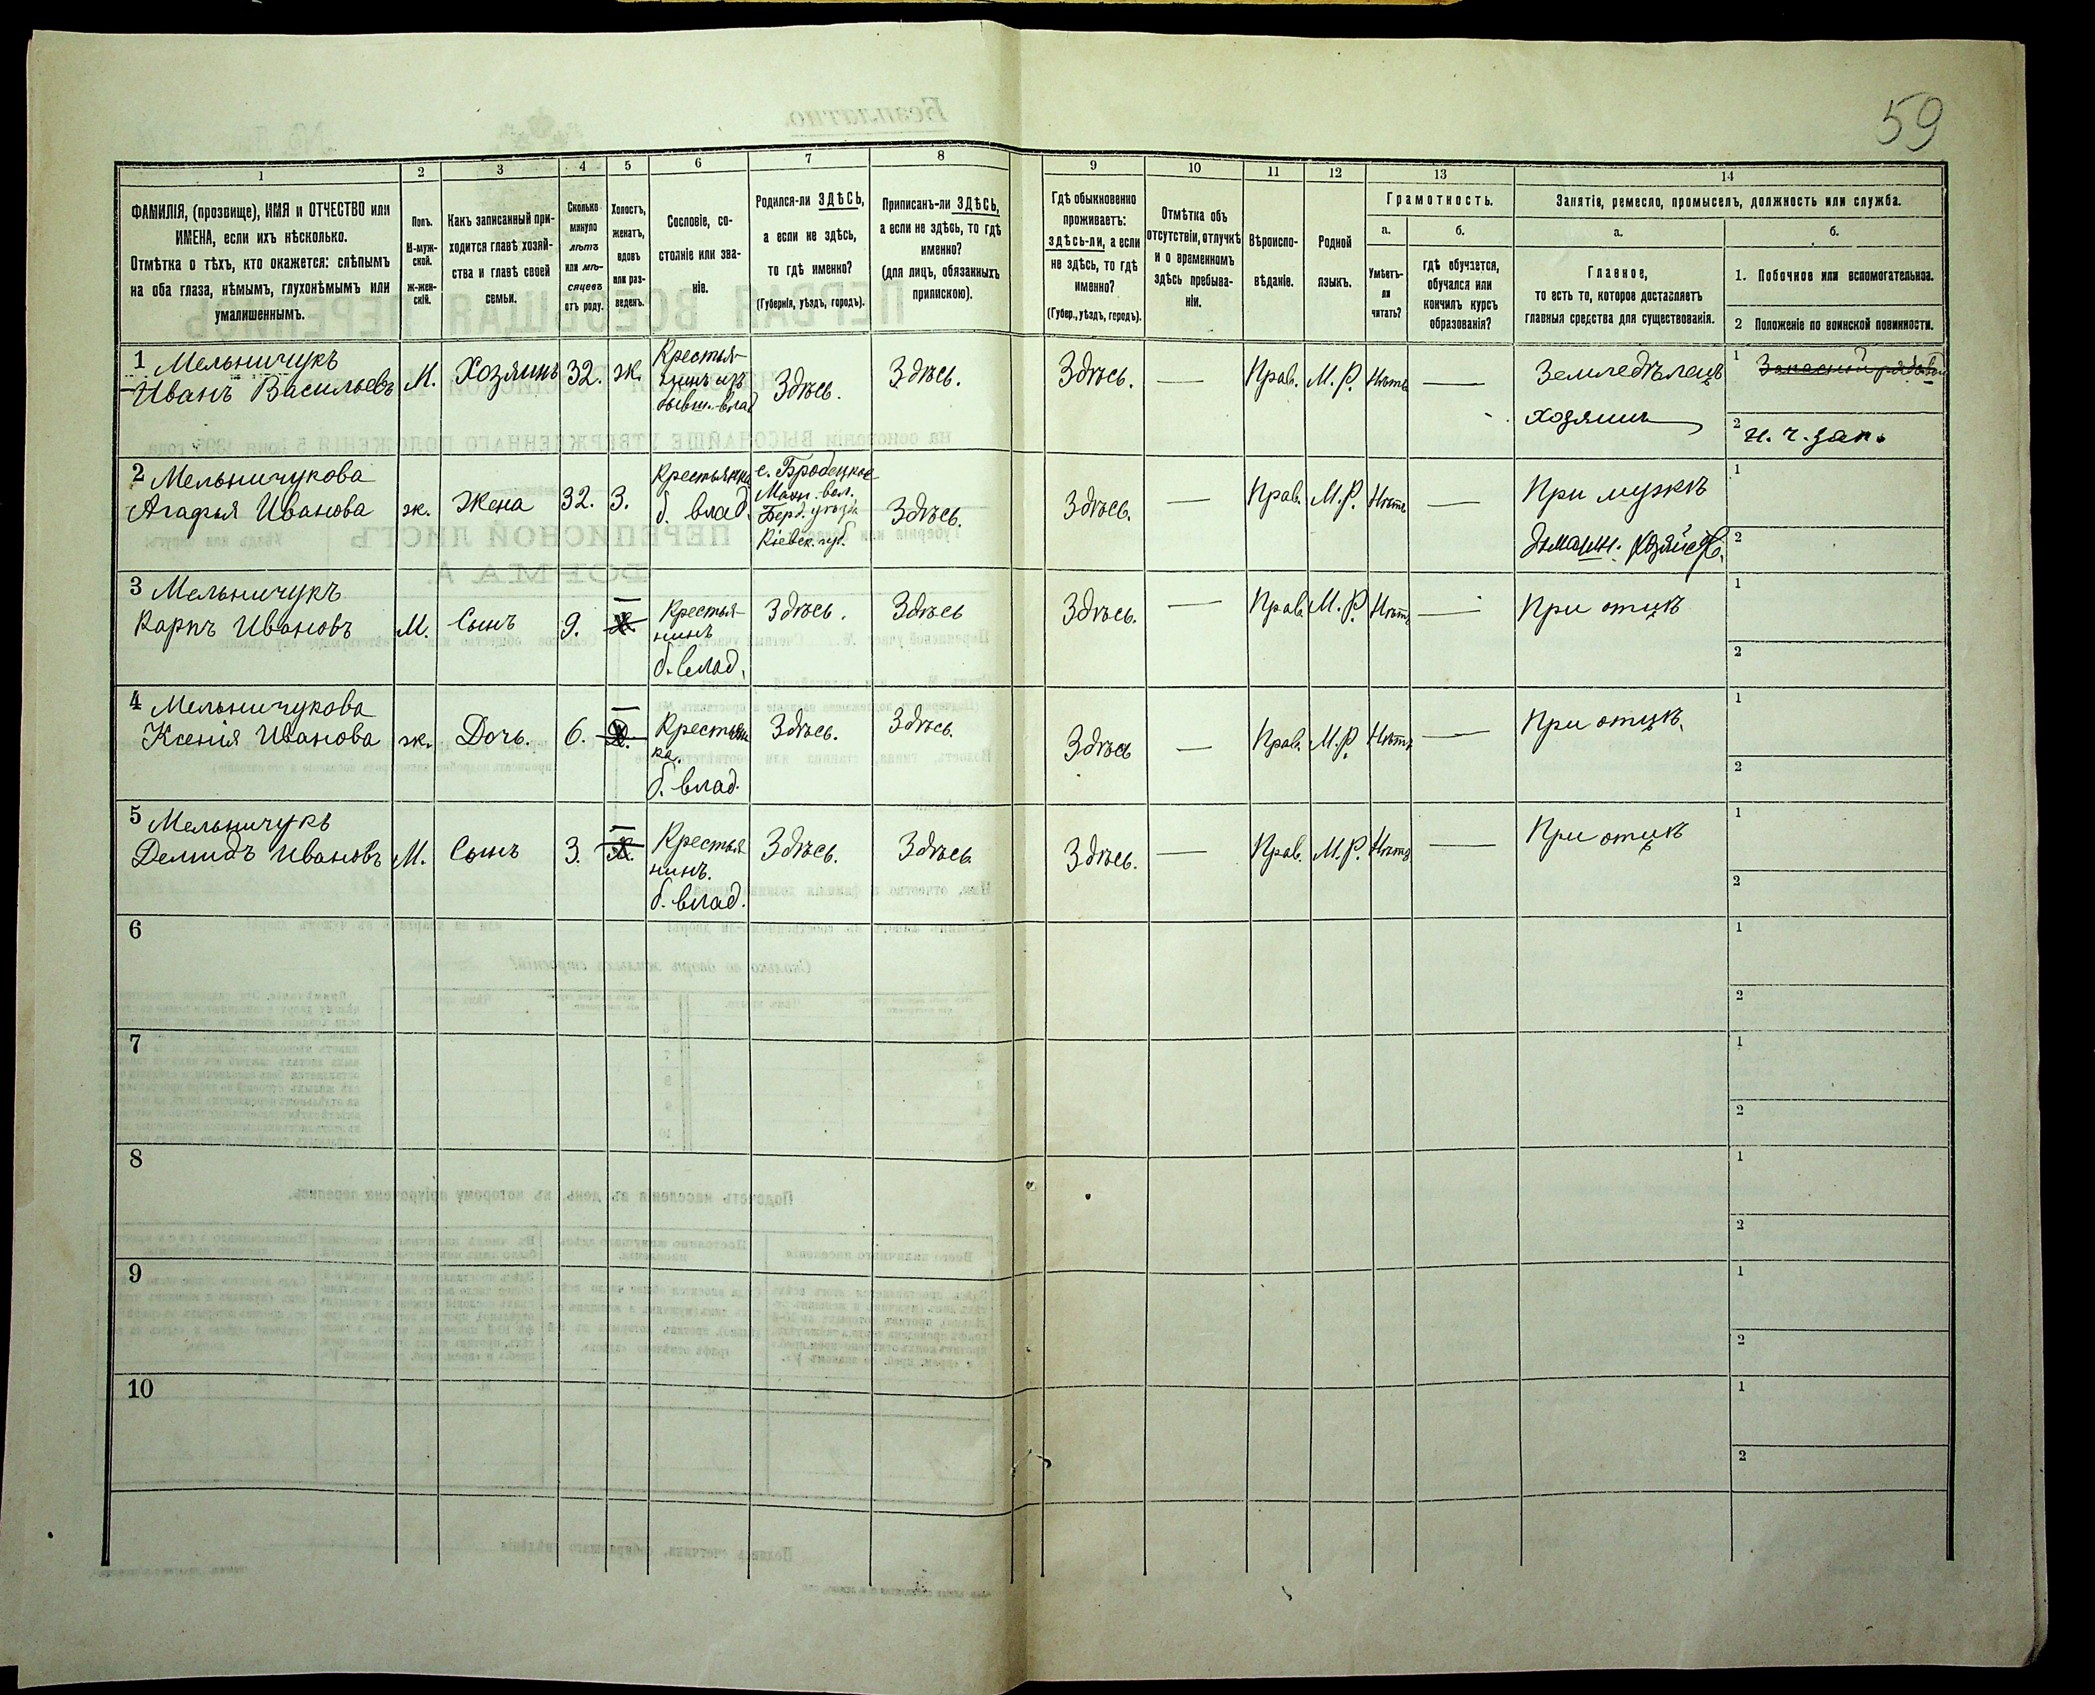 59
1
2
3
4
5
6
7
8
9
10
11
12
13
14
ФАМИЛІЯ, (прозвище), ИМЯ и ОТЧЕСТВО или
ИМЕНА, если ихъ нѣсколько.
Отмѣтка о тѣхъ, кто окажется: слѣпымъ
на оба глаза, нѣмымъ, глухонѣмымъ или
умалишеннымъ.
Полъ.
М-муж-
ской.
Ж-жен-
скій.
Какъ записанный при-
ходится главѣ хозяй-
ства и главѣ своей
семьи.
Сколько
минуло
лѣтъ
или мѣ-
сяцевъ
отъ роду.
Холостъ,
женатъ,
вдовъ
или раз-
веденъ.
Сословіе, со-
стояніе или зва-
ніе.
Родился-ли ЗДѢСЬ,
а если не здѣсь,
то гдѣ именно?
(Губернія, уѣздъ, городъ).
Приписанъ-ли ЗДѢСЬ,
а если не здѣсь, то гдѣ
именно?
(для лицъ, обязанныхъ
припискою).
Гдѣ обыкновенно
проживаетъ:
здѣсь-ли, а если
не здѣсь, то гдѣ
именно?
(Губер., уѣздъ, городъ).
Отмѣтка объ
отсутствіи, отлучкѣ
и о временномъ
здѣсь пребыва-
ніи.
Вѣроиспо-
вѣданіе.
Родной
языкъ.
Грамотность.
а.
Умѣетъ-
ли
читать?
б.
гдѣ обучается,
обучался или
кончилъ курсъ
образованія?
Занятіе, ремесло, промыселъ, должность или служба.
а.
Главное,
то есть то, которое доставляетъ
главныя средства для существованія.
б.
1. Побочное или вспомогательное.
2 Положеніе по воинской повинности.
1 Мельничукъ
Иванъ Васильевъ
М.
Хозяинъ
32.
ж.
Крестья-
нинъ изъ
бывш. влад
Здѣсь.
Здѣсь.
Здѣсь.
—
Прав.
М. Р.
Нѣтъ
—
Земледѣлецъ
хозяинъ
1 Запасной рядовой
2 н. ч. зап.
2 Мельничукова
Агафья Иванова
ж.
Жена
32.
З.
Крестьянка
б. влад.
с. Бродецкое
Махн. вол.,
Берд. уѣзда
Кіевск. губ.
Здѣсь.
Здѣсь.
—
Прав.
М. Р.
Нѣтъ
—
При мужѣ
домашн. хозяйств.
1
2
3 Мельничукъ
Карпъ Ивановъ
М.
Сынъ
9.
—
Крестья-
нинъ
б. влад.
Здѣсь.
Здѣсь
Здѣсь.
—
Прав
М. Р.
Нѣтъ
—
При отцѣ
1
2
4 Мельничукова
Ксенія Иванова
ж.
Дочь.
6.
—
Крестьян
ка
б. влад.
Здѣсь.
Здѣсь.
Здѣсь
—
Прав.
М. Р.
Нѣтъ
—
При отцѣ.
1
2
5 Мельничукъ
Демидъ Ивановъ
М.
Сынъ
3.
—
Крестья
нинъ.
б. влад.
Здѣсь.
Здѣсь
Здѣсь.
—
Прав.
М. Р.
Нѣтъ
—
При отцѣ
1
2
6
1
2
7
1
2
8
1
2
9
1
2
10
1
2